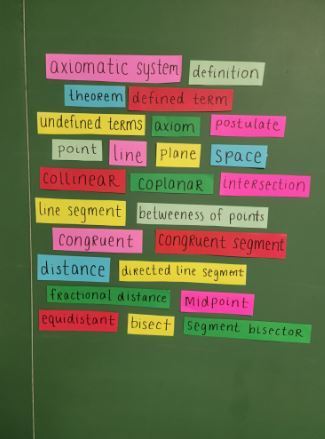 axiomatic system definition
theorem defined term
undefined terms axiom postulate
point line plane space
collinear coplanar intersection
line segment betweeness of points
congruent congruent segment
distance directed line segment
fractional distance Midpoint
equidistant bisect segment bisector